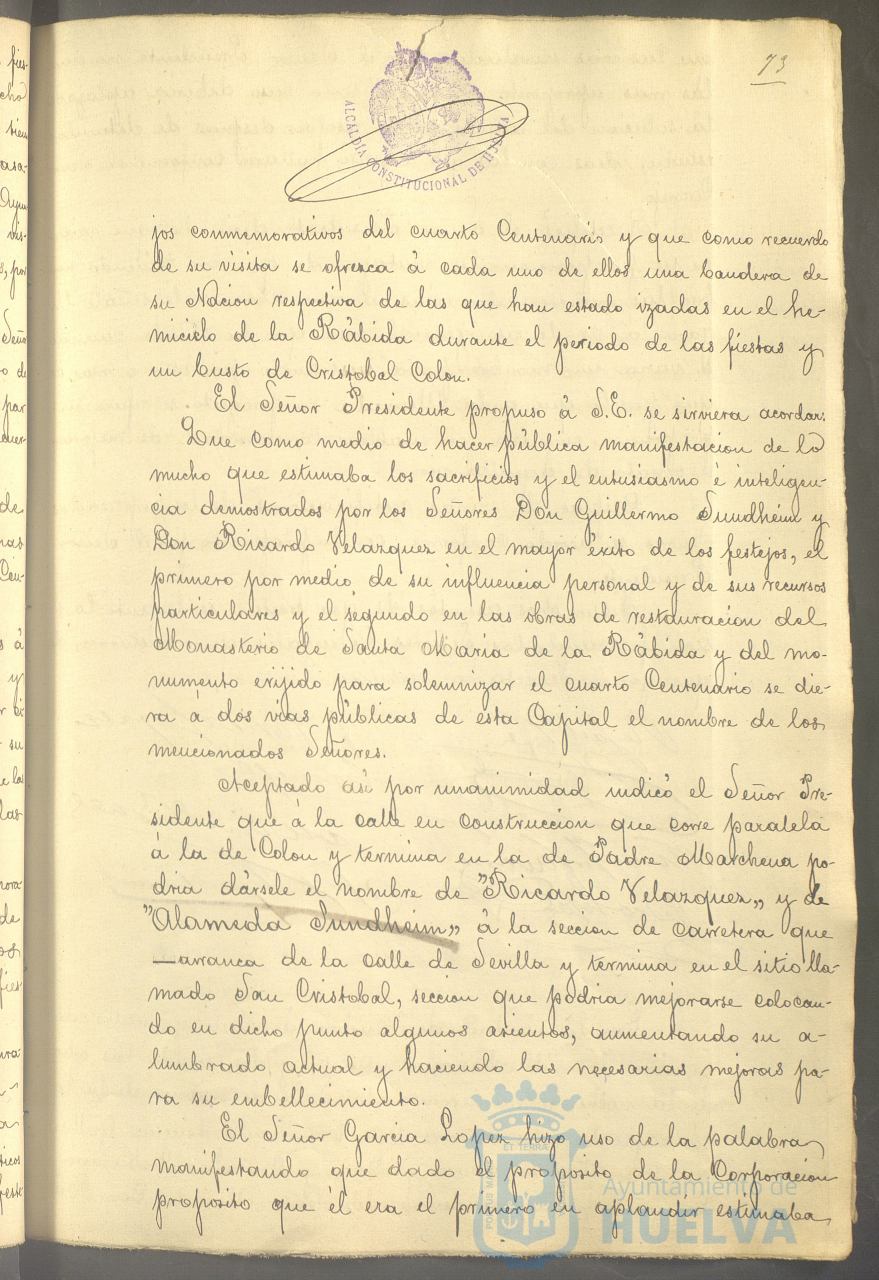 73
ALCALDÍA CONSTITUCIONAL DE HUELVA
jos conmemorativos del cuarto Centenario y que como recuerdo
de su visita se ofrezca á cada uno de ellos una bandera de
su Nacion respectiva de las que han estado izadas en el he-
miciclo de la Rábida durante el periodo de las fiestas y
un busto de Cristobal Colon.
El Señor Presidente propuso á S.E. se sirviera acordar:
Que como medio de hacer pública manifestacion de lo
mucho que estimaba los sacrificios y el entusiasmo é inteligen-
cia demostrados por los Señores Don Guillermo Sundheim y
Don Ricardo Velazquez en el mayor éxito de los festejos, el
primero por medio de su influencia personal y de sus recursos
particulares y el segundo en las obras de restauracion del
Monasterio de Santa Maria de la Rábida y del mo-
numento erijido para solemnizar el cuarto Centenario se die-
ra á dos vias públicas de esta Capital el nombre de los
mencionados Señores.
Aceptado así por unanimidad indicó el Señor Pre-
sidente que á la calle en construccion que corre paralela
á la de Colon y termina en la de Padre Marchena po-
dria dársele el nombre de "Ricardo Velazquez„ y de
"Alameda Sundheim„ á la seccion de carretera que
arranca de la calle de Sevilla y termina en el sitio lla-
mado San Cristobal, seccion que podria mejorarse colocan-
do en dicho punto algunos asientos, aumentando su a-
lumbrado actual y haciendo las necesarias mejoras pa-
ra su embellecimiento.
El Señor Garcia Lopez hizo uso de la palabra
manifestando que dado el proposito de la Corporacion
proposito que él era el primero en aplaudir estimaba
Ayuntamiento de
HUELVA